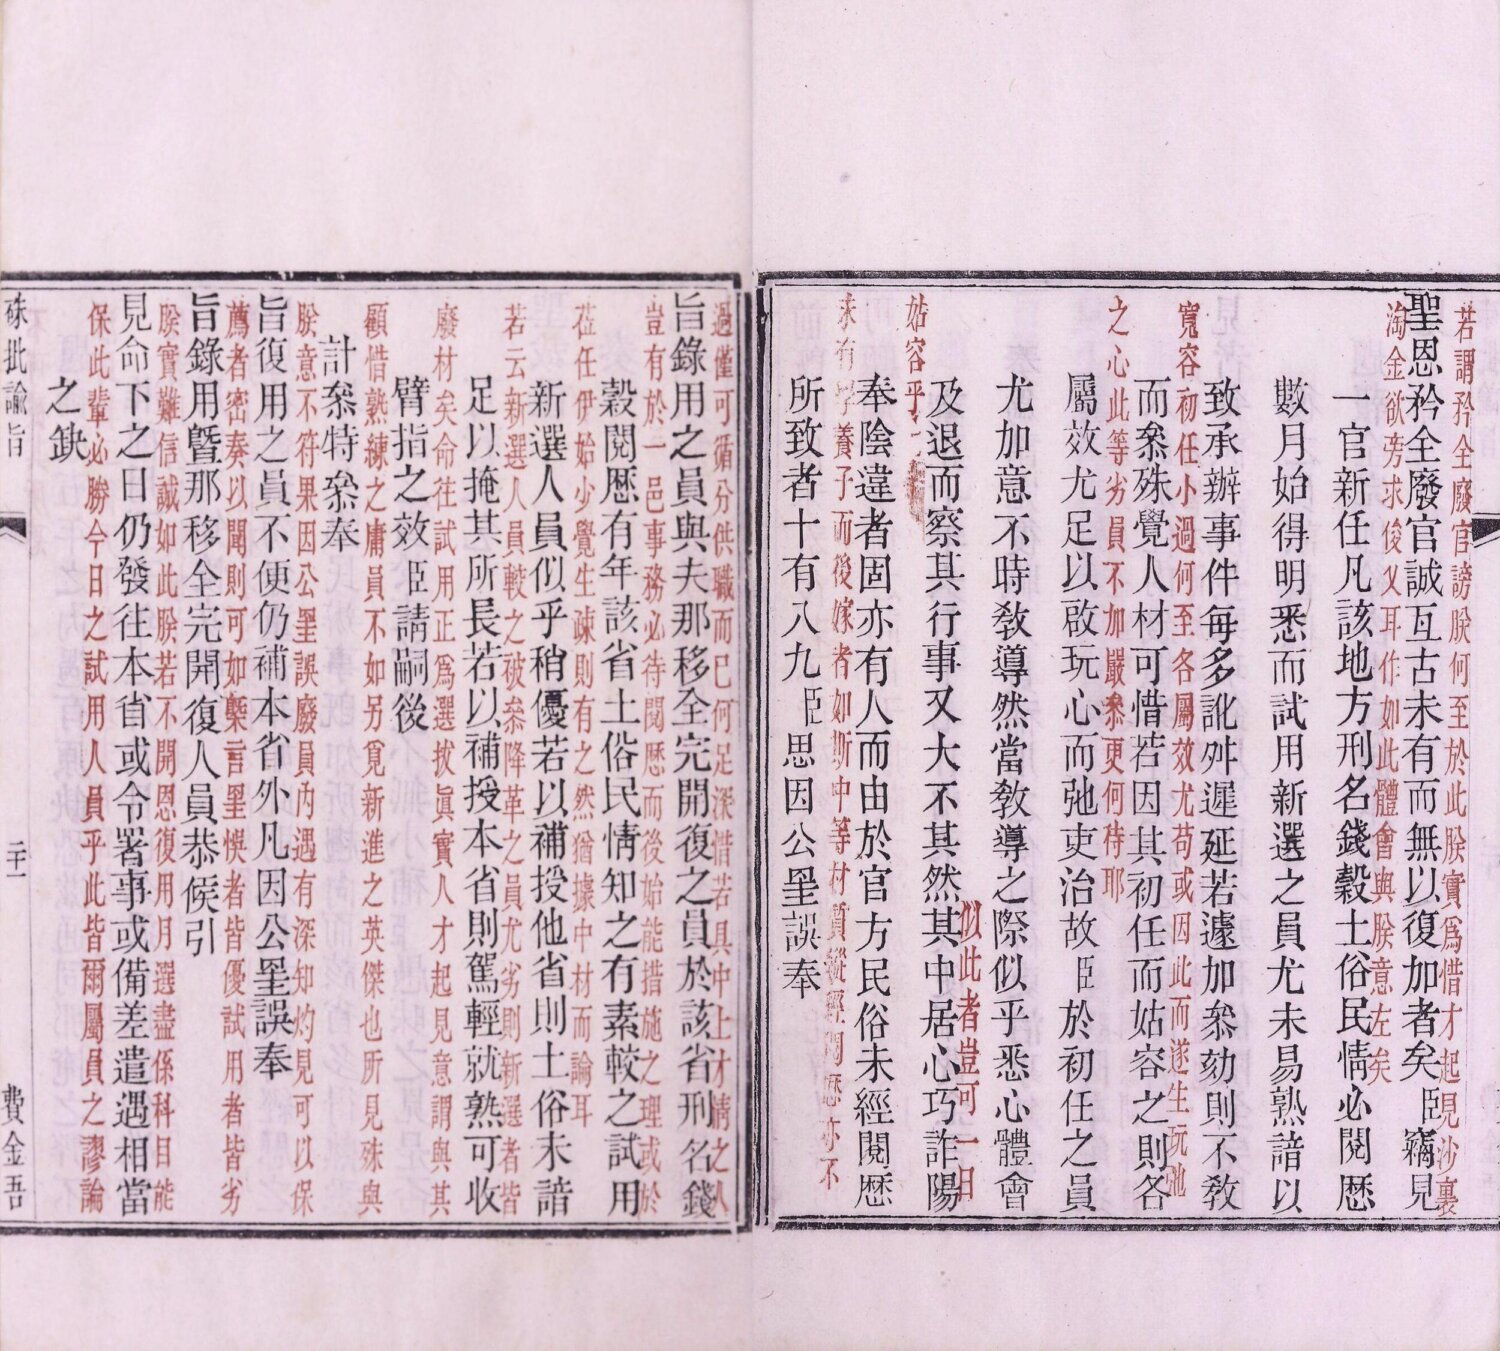 若謂矜全廢官謗朕何至於此朕實爲惜才起見沙裏
聖恩矜全廢官誠亙古未有而無以復加者矣臣竊見
淘金欲旁求俊乂耳作如此體會與朕意左矣
一官新任凡該地方刑名錢穀土俗民情必閱歷
數月始得明悉而試用新選之員尤未易熟諳以
致承辦事件每多訛舛遲延若遽加叅劾則不敎
寬容初任小過何至各屬效尤苟或因此而遂生玩弛
而叅殊覺人材可惜若因其初任而姑容之則各
之心此等劣員不加嚴叅更何待耶
屬效尤足以啟玩心而弛吏治故臣於初任之員
尤加意不時敎導然當敎導之際似乎悉心體會
似此者豈可一日
及退而察其行事又大不其然其中居心巧詐陽
姑容乎
奉陰違者固亦有人而由於官方民俗未經閱歷
未有學養子而後嫁者如斯中等材質縱經閱歷亦不
所致者十有八九臣思因公罣誤奉
過僅可循分供職而已何足深惜若具中上才情之人
旨錄用之員與夫那移全完開復之員於該省刑名錢
豈有於一邑事務必待閱歷而後始能措施之理或於
穀閱歷有年該省土俗民情知之有素較之試用
莅任伊始少覺生疎則有之然猶據中材而論耳
新選人員似乎稍優若以補授他省則土俗未諳
若云新選人員較之破叅降革之員尤劣則新選者皆
足以掩其所長若以補授本省則駕輕就熟可收
廢材矣命往試用正爲選拔眞實人才起見意謂與其
臂指之效臣請嗣後
顧惜熟練之庸員不如另覓新進之英傑也所見殊與
計叅特叅奉
朕意不符果因公罣誤廢員內遇有深知灼見可以保
旨復用之員不便仍補本省外凡因公罣誤奉
薦者密奏以聞則可如槩言罣悞者皆優試用者皆劣
旨錄用曁那移全完開復人員恭候引
朕實難信誠如此朕若不開恩復用月選盡係科目能
見命下之日仍發往本省或令署事或備差遣遇相當
保此輩必勝今日之試用人員乎此皆爾屬員之謬論
之缺
硃批諭旨
二十一
費金吾